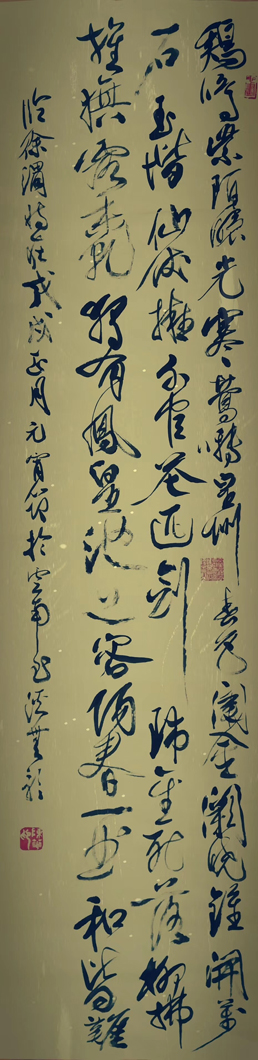 鷄鳴紫陌曙光寒鶯囀皇州春色闌金闕曉鐘開萬
戶玉階仙仗擁千官花迎劍珮星初落柳拂
旌旗露未乾獨有鳳皇池上客陽春一曲和皆難
臨徐渭戊戌正月元宵節於雲南